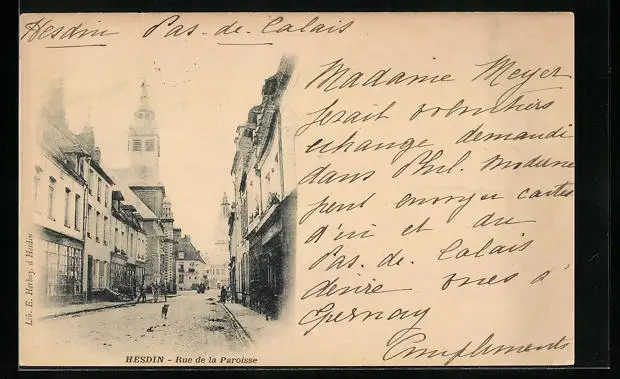 Hesdin Pas-de-Calais
Madame Meyer
ferait volontiers
echange demandé
dans Phil. Moderne
peut envoyer cartes
d'ici et du
Pas. de. Calais
désire vues d'
Epernay
Compliments
Lib. E. Herbay, à Hesdin
HESDIN - Rue de la Paroisse